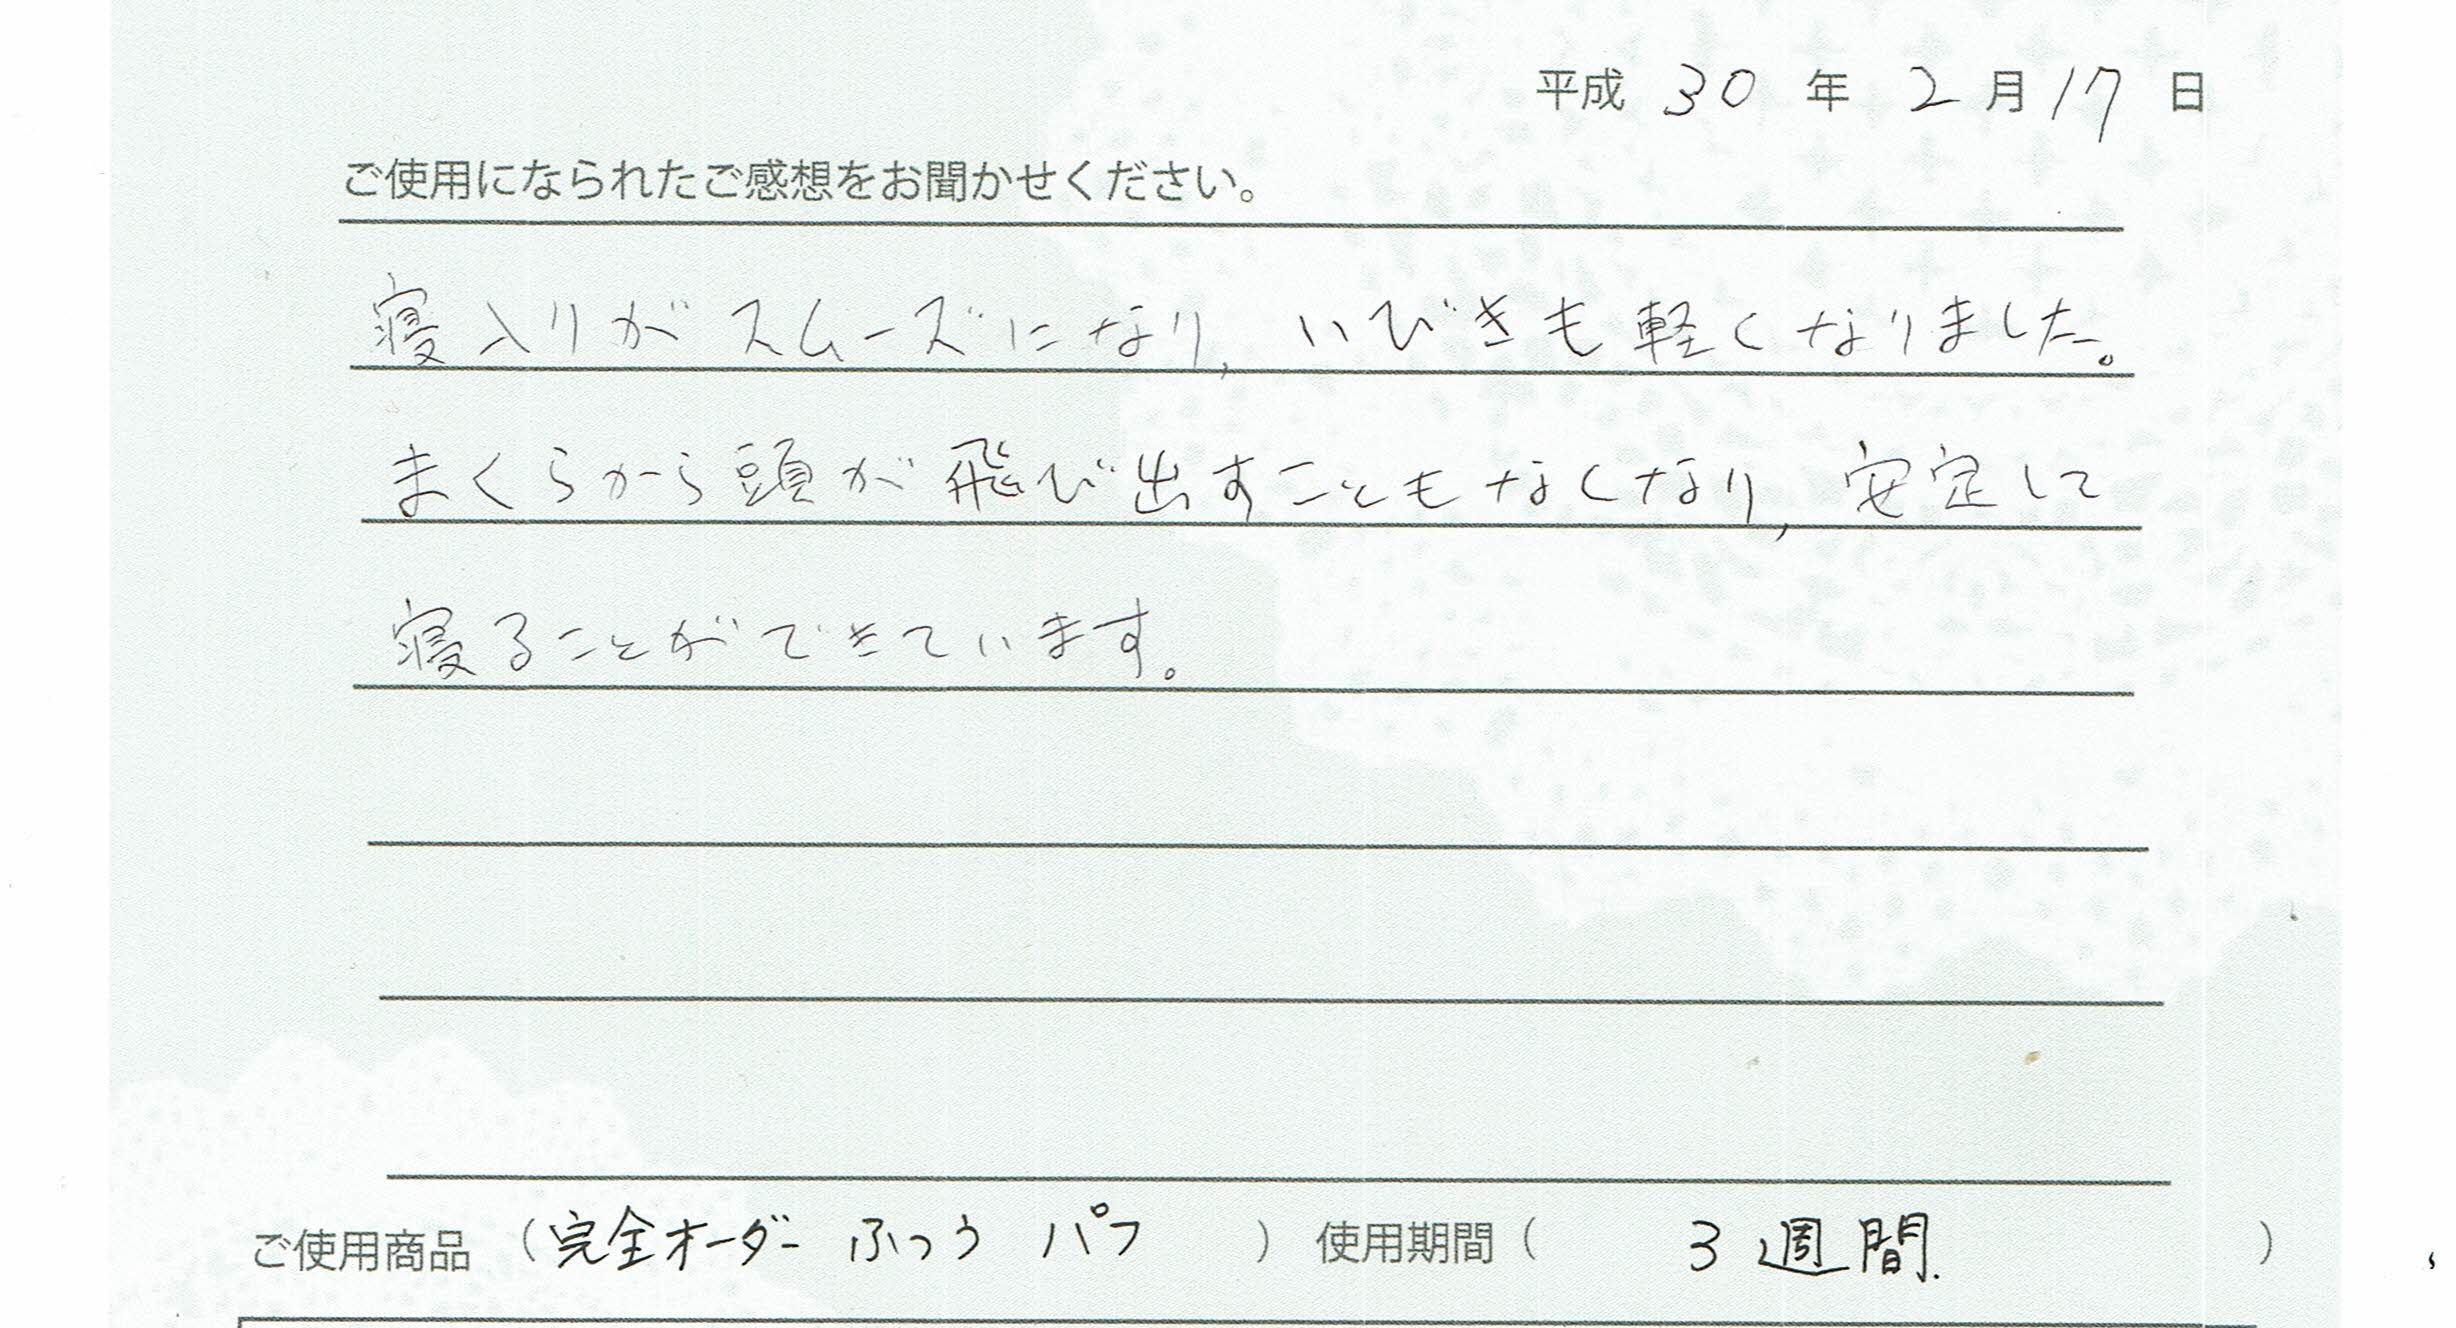 平成 30 年 2 月 17 日
ご使用になられたご感想をお聞かせください。
寝入りがスムーズになり、いびきも軽くなりました。
まくらから頭が飛び出すこともなくなり、安定して
寝ることができています。
ご使用商品（完全オーダー ふつう パフ ）使用期間（ 3週間. ）